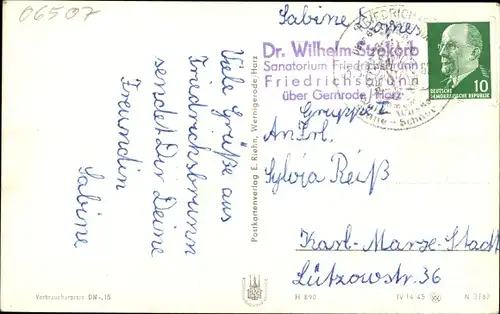 06507
Sabine
Dr. Wilhelm Strekorb
Sanatorium Friedrichsbrunn
Friedrichsbrunn
über Gernrode / Harz
DEUTSCHE
DEMOKRATISCHE REPUBLIK
10
Gruppe I
An Frl.
Sylvia Reiß
Karl-Marx-Stadt
Lützowstr. 36
Viele Grüße aus
Friedrichsbrunn
sendet Dir Deine
Freundin
Sabine
Postkartenverlag E. Riehn, Wernigerode/Harz
Verbraucherpreis DM -,15
H 890
IV-14-45